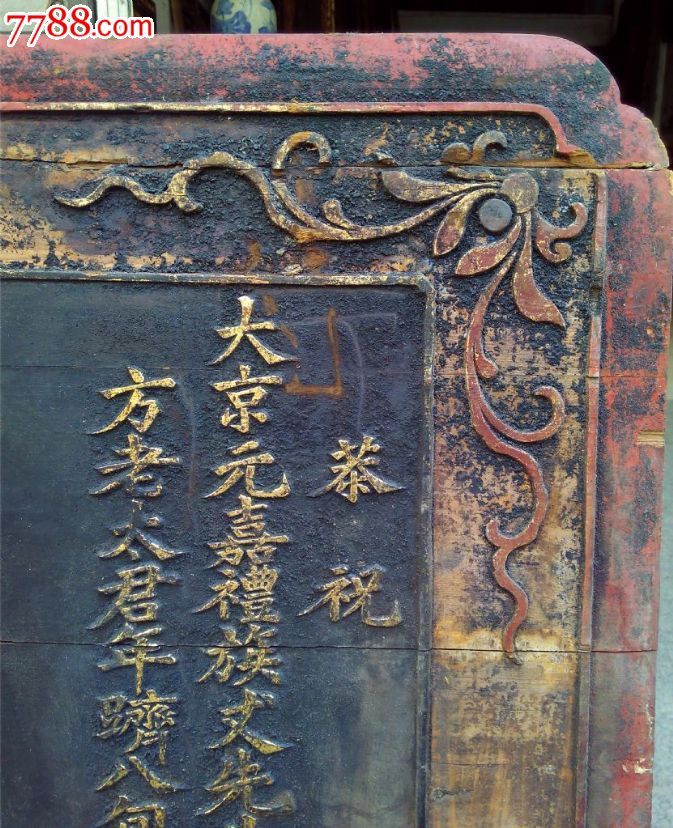 7788.com
恭祝
大京元嘉禮族丈先
方老太君年躋八旬